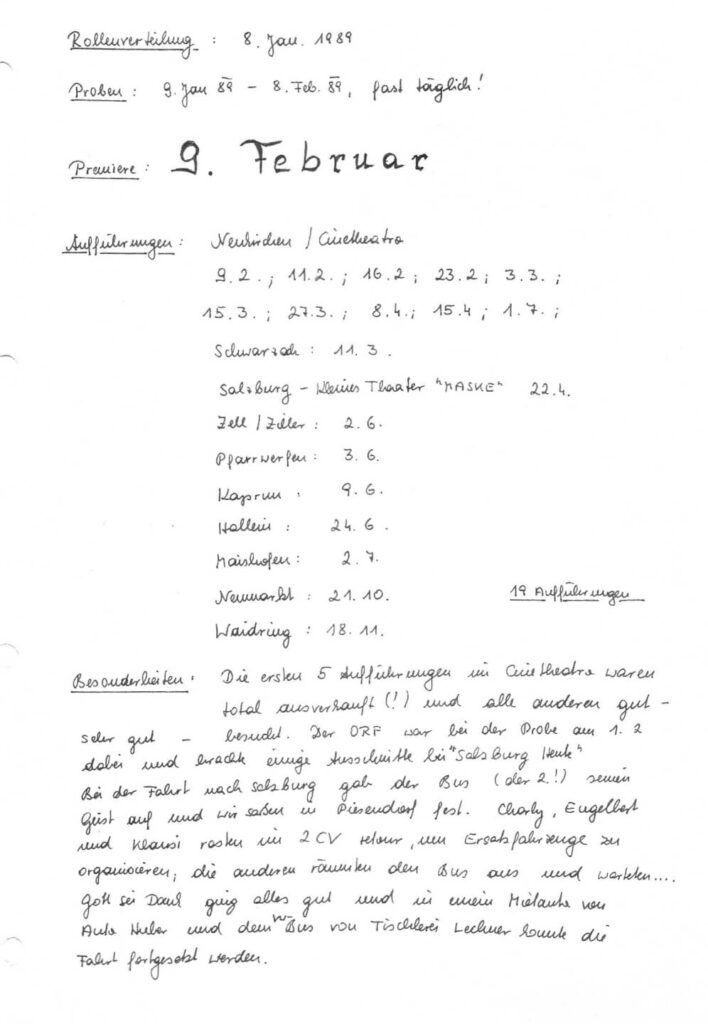 Rollenverteilung : 8. Jan. 1989
Proben : 9. Jan 89 – 8. Feb. 89, fast täglich!
Premiere : 9. Februar
Aufführungen : Neukirchen / Cinetheatro
9.2. ; 11.2. ; 16.2 ; 23.2 ; 3.3. ;
15.3. ; 27.3. ; 8.4. ; 15.4 ; 1.7. ;
Schwarzach : 11.3.
Salzburg – Kleines Theater "MASKE" 22.4.
Zell / Ziller : 2.6.
Pfarrwerfen : 3.6.
Kaprun : 9.6.
Hallein : 24.6.
Maishofen : 2.7.
Neumarkt : 21.10.
19 Aufführungen
Waidring : 18.11.
Besonderheiten : Die ersten 5 Aufführungen im Cinetheatro waren
total ausverkauft (!) und alle anderen gut –
sehr gut – besucht. Der ORF war bei der Probe am 1.2
dabei und brachte einige Ausschnitte bei "Salzburg Heute"
Bei der Fahrt nach Salzburg gab der Bus (der 2.!) seinen
Geist auf und wir saßen in Piesendorf fest. Charly, Engelbert
und Klausi rasten im 2 CV retour, um Ersatzfahrzeuge zu
organisieren; die anderen räumten den Bus aus und warteten....
Gott sei Dank ging alles gut und in einem Mietauto von
Auto Huber und dem VW-Bus von Tischlerei Lechner konnte die
Fahrt fortgesetzt werden.